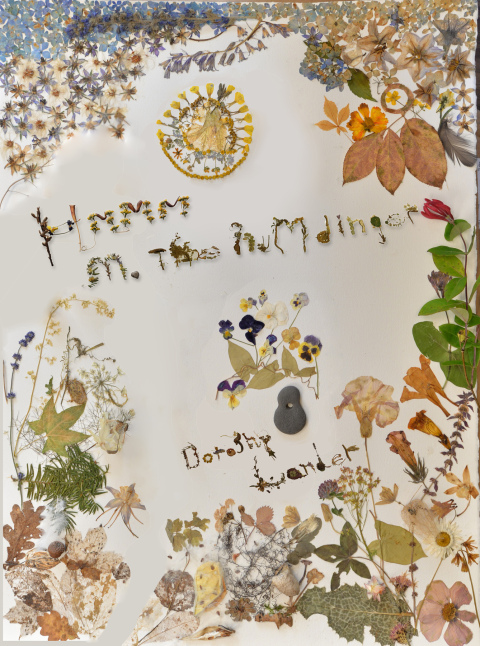 Hmmm
m. The huMdinger
Dorothy
Lander